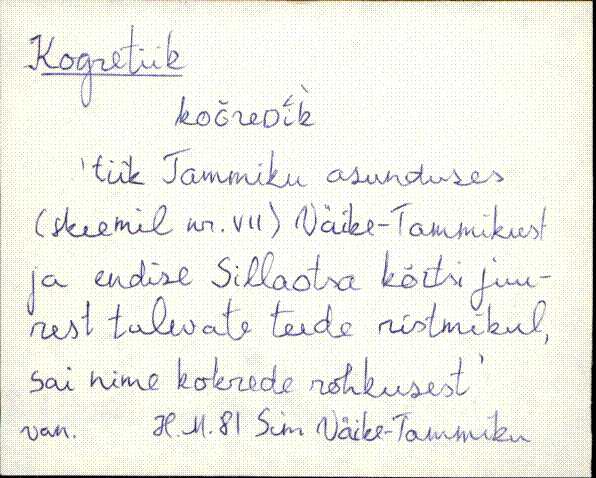 Kogretiik
koɢ̆reDik
'tiik Tammiku asunduses
(skeemil nr. VII) Väike-Tammikust
ja endise Sillaotsa kõrtsi juu-
rest tulevate teede ristmikul,
sai nime kokrede rohkusest'
van. H. M. 81 Sim Väike-Tammiku